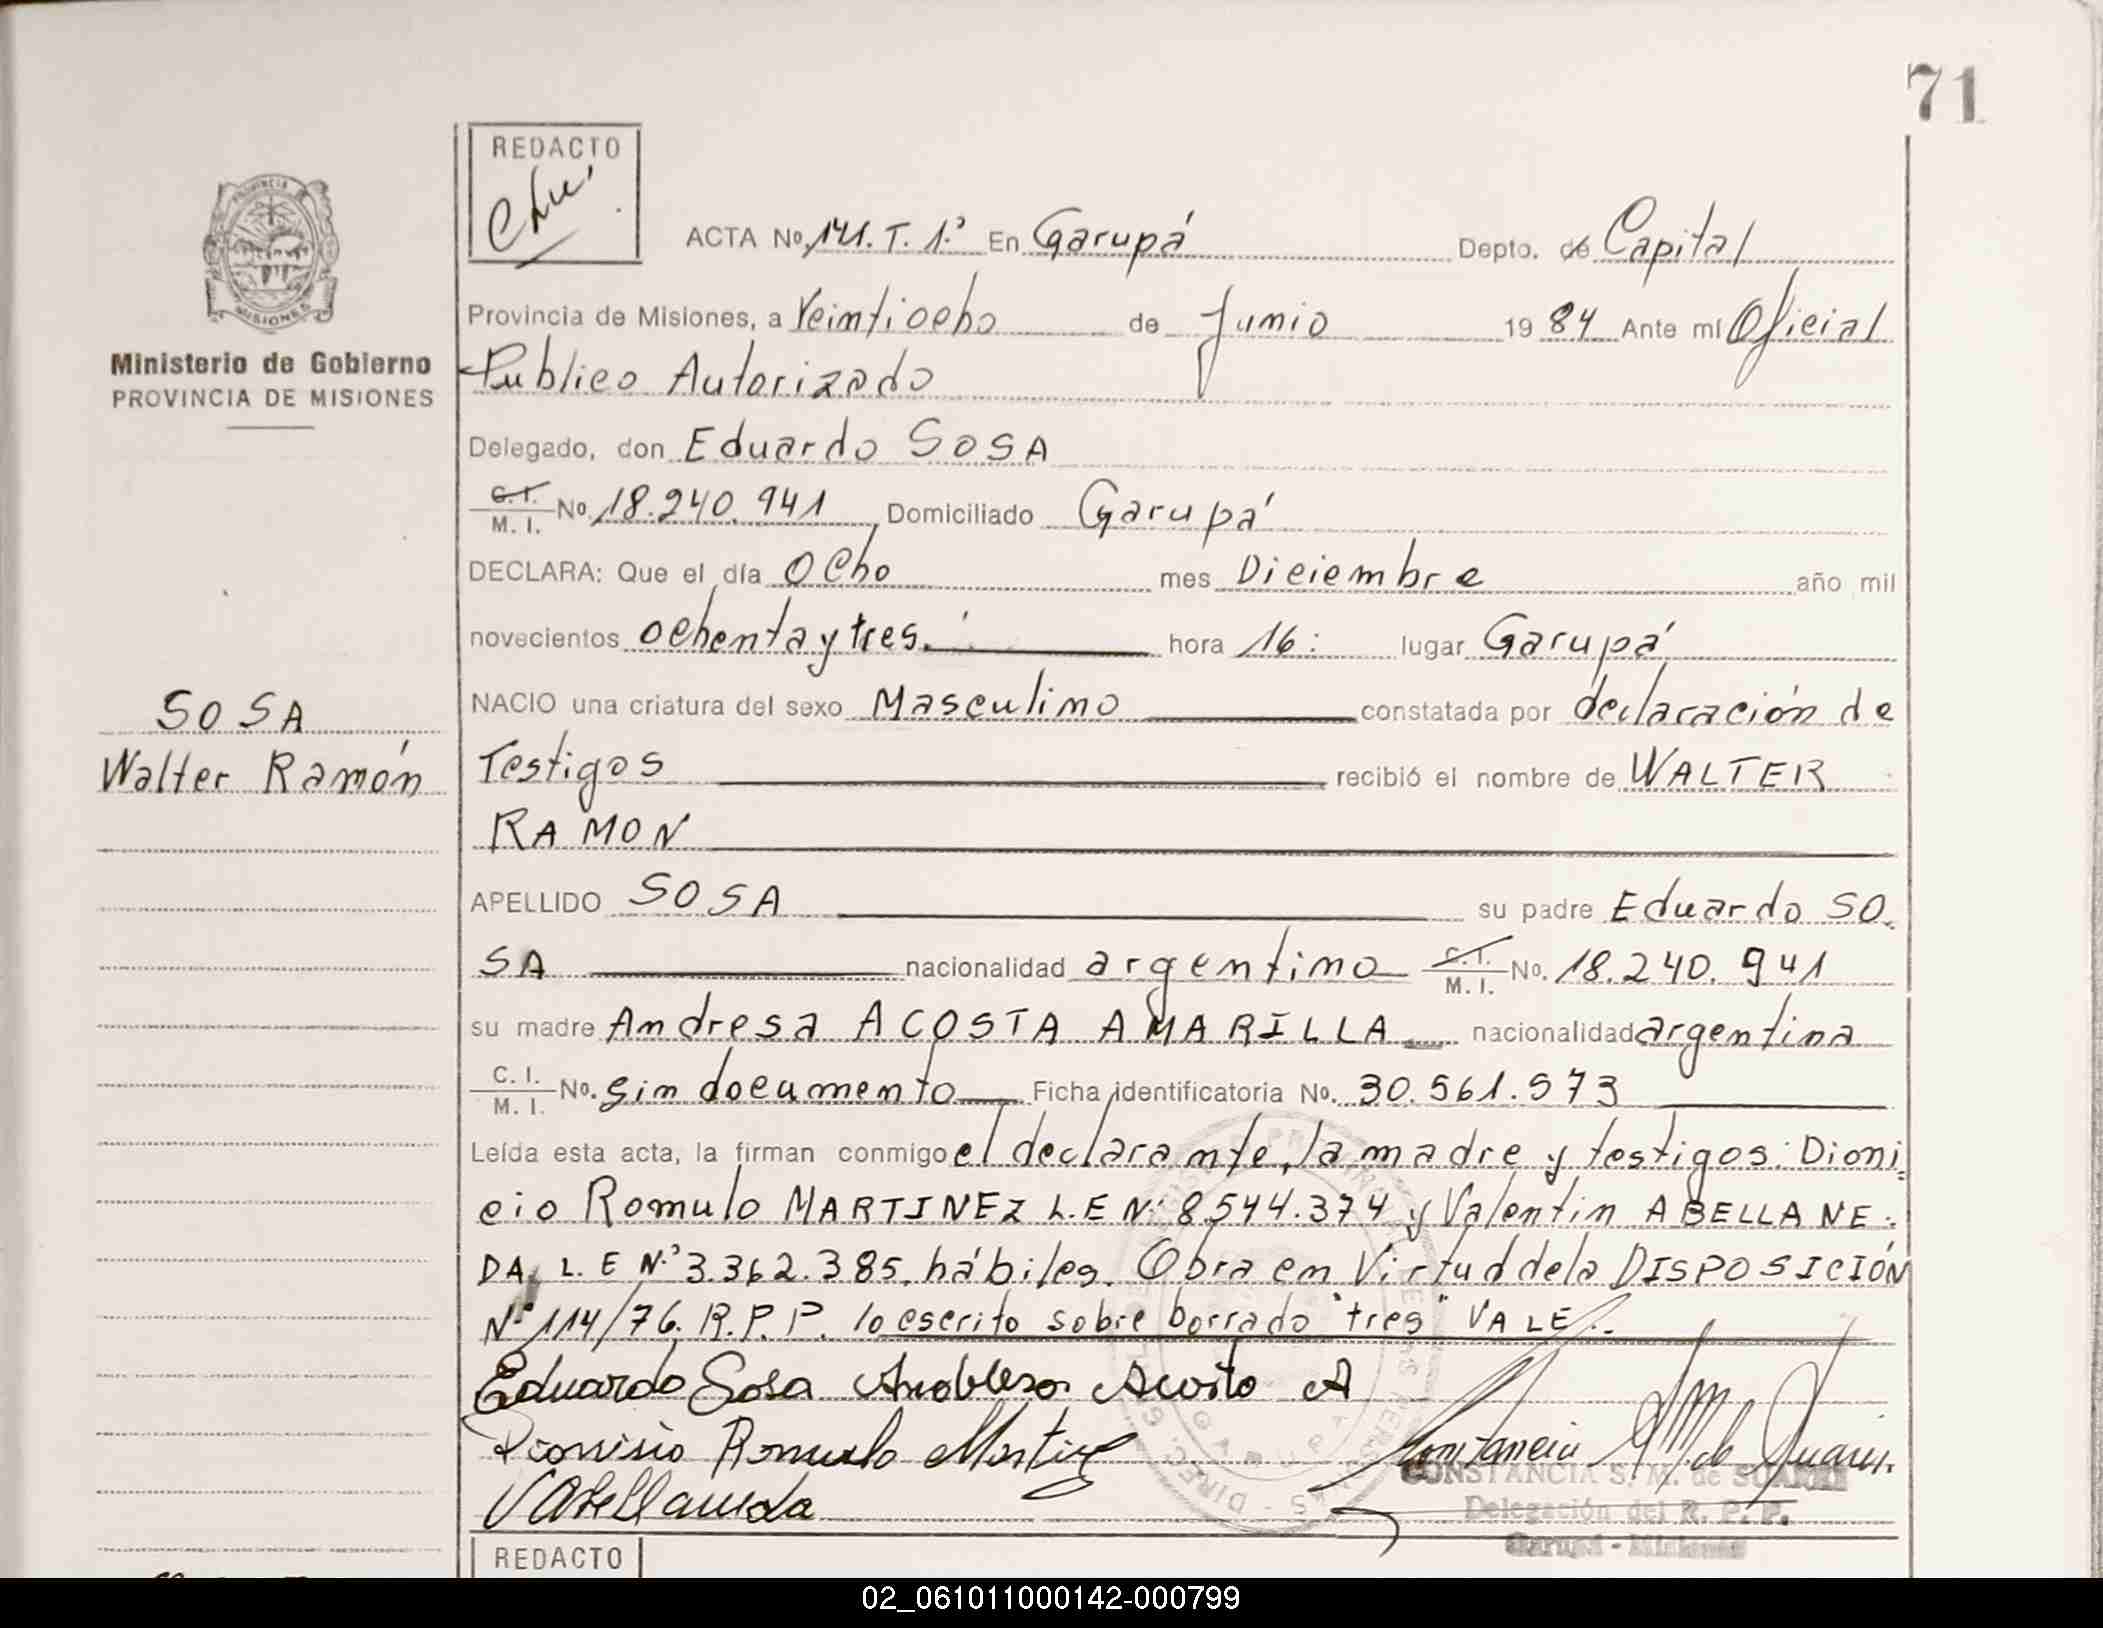 71
REDACTO
ACTA No. 141. T. 1.º En Garupá Depto. de Capital
Provincia de Misiones, a Veintiocho de Junio 1984 Ante mí Oficial
Publico Autorizado
Ministerio de Gobierno
PROVINCIA DE MISIONES
Delegado, don Eduardo SOSA
C.I. M.I. No. 18.240.941 Domiciliado Garupá
DECLARA: Que el día Ocho mes Diciembre año mil
novecientos ochenta y tres. hora 16: lugar Garupá
SOSA
Walter Ramón
NACIO una criatura del sexo Masculino constatada por declaración de
Testigos recibió el nombre de WALTER
RAMON
APELLIDO SOSA su padre Eduardo SO.
SA nacionalidad argentino C.I. M.I. No. 18.240.941
su madre Andresa ACOSTA AMARILLA nacionalidad argentina
C.I. M.I. No. sin documento Ficha identificatoria No. 30.561.573
Leída esta acta, la firman conmigo el declarante, la madre y testigos: Dioni
cio Romulo MARTINEZ L.E Nº 8.544.374 y Valentin ABELLANE.
DA, L.E Nº 3.362.385, hábiles. Obra en Virtud de la DISPOSICIÓN
Nº 114/76. R.P.P. lo escrito sobre borrado "tres" VALE.
Eduardo Sosa Andresa Acosta A
Dionisio Romulo Martinez
VAbellaneda
CONSTANCIA S. M. de SUAREZ
Delegación del R. P. P.
Garupá - Misiones
REDACTO
02_061011000142-000799